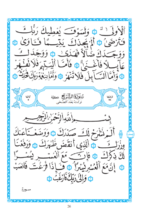 الْأُولَىٰ وَلَسَوْفَ يُعْطِيكَ رَبُّكَ
فَتَرْضَىٰ أَلَمْ يَجِدْكَ يَتِيمًا فَـَٔاوَىٰ
وَوَجَدَكَ ضَآلًّا فَهَدَىٰ وَوَجَدَكَ
عَآئِلًا فَأَغْنَىٰ فَأَمَّا ٱلْيَتِيمَ فَلَا تَقْهَرْ
وَأَمَّا ٱلسَّآئِلَ فَلَا تَنْهَرْ وَأَمَّا بِنِعْمَةِ رَبِّكَ فَحَدِّثْ
بِسْمِ ٱللَّهِ ٱلرَّحْمَٰنِ ٱلرَّحِيمِ
أَلَمْ نَشْرَحْ لَكَ صَدْرَكَ وَوَضَعْنَا عَنكَ
وِزْرَكَ ٱلَّذِىٓ أَنقَضَ ظَهْرَكَ وَرَفَعْنَا
لَكَ ذِكْرَكَ فَإِنَّ مَعَ ٱلْعُسْرِ يُسْرًا
إِنَّ مَعَ ٱلْعُسْرِ يُسْرًا فَإِذَا فَرَغْتَ فَٱنصَبْ
وَإِلَىٰ رَبِّكَ فَٱرْغَب